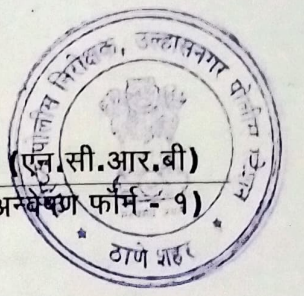 पोलीस निरीक्षक, उल्हासनगर पोलीस स्टेशन
(एन.सी.आर.बी)
अन्वेषण फॉर्म - १)
ठाणे शहर